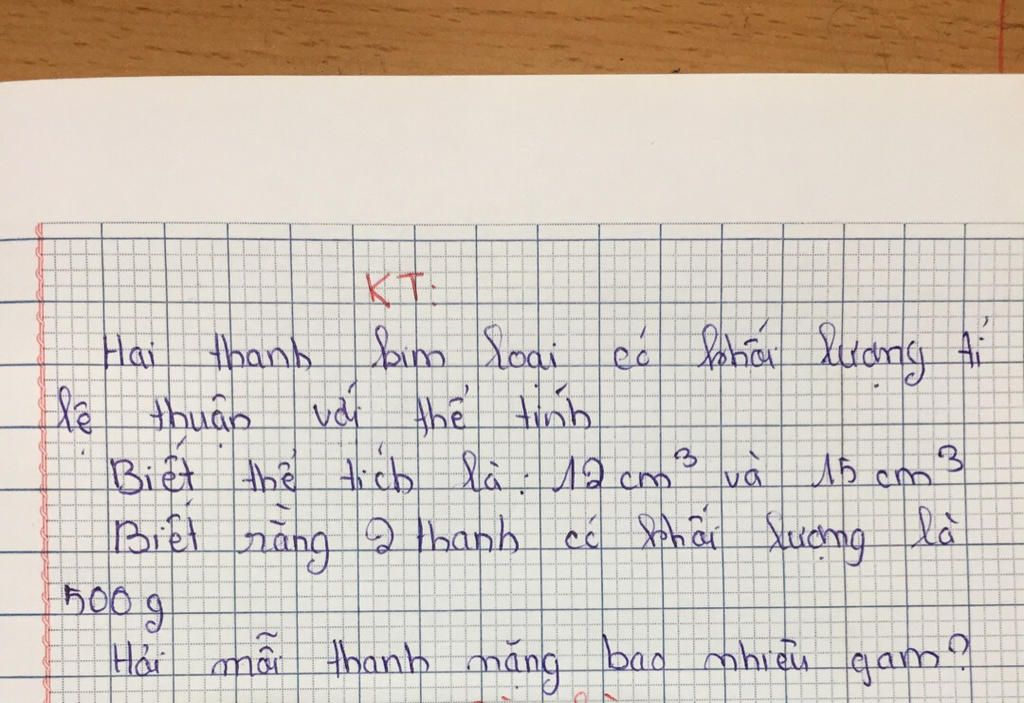 KT:
Hai thanh kim loại có khối lượng tỉ
lệ thuận với thể tính
Biết thể tích là: 12 cm³ và 15 cm³
Biết rằng 2 thanh có khối lượng là
500g
Hỏi mỗi thanh nặng bao nhiêu gam?